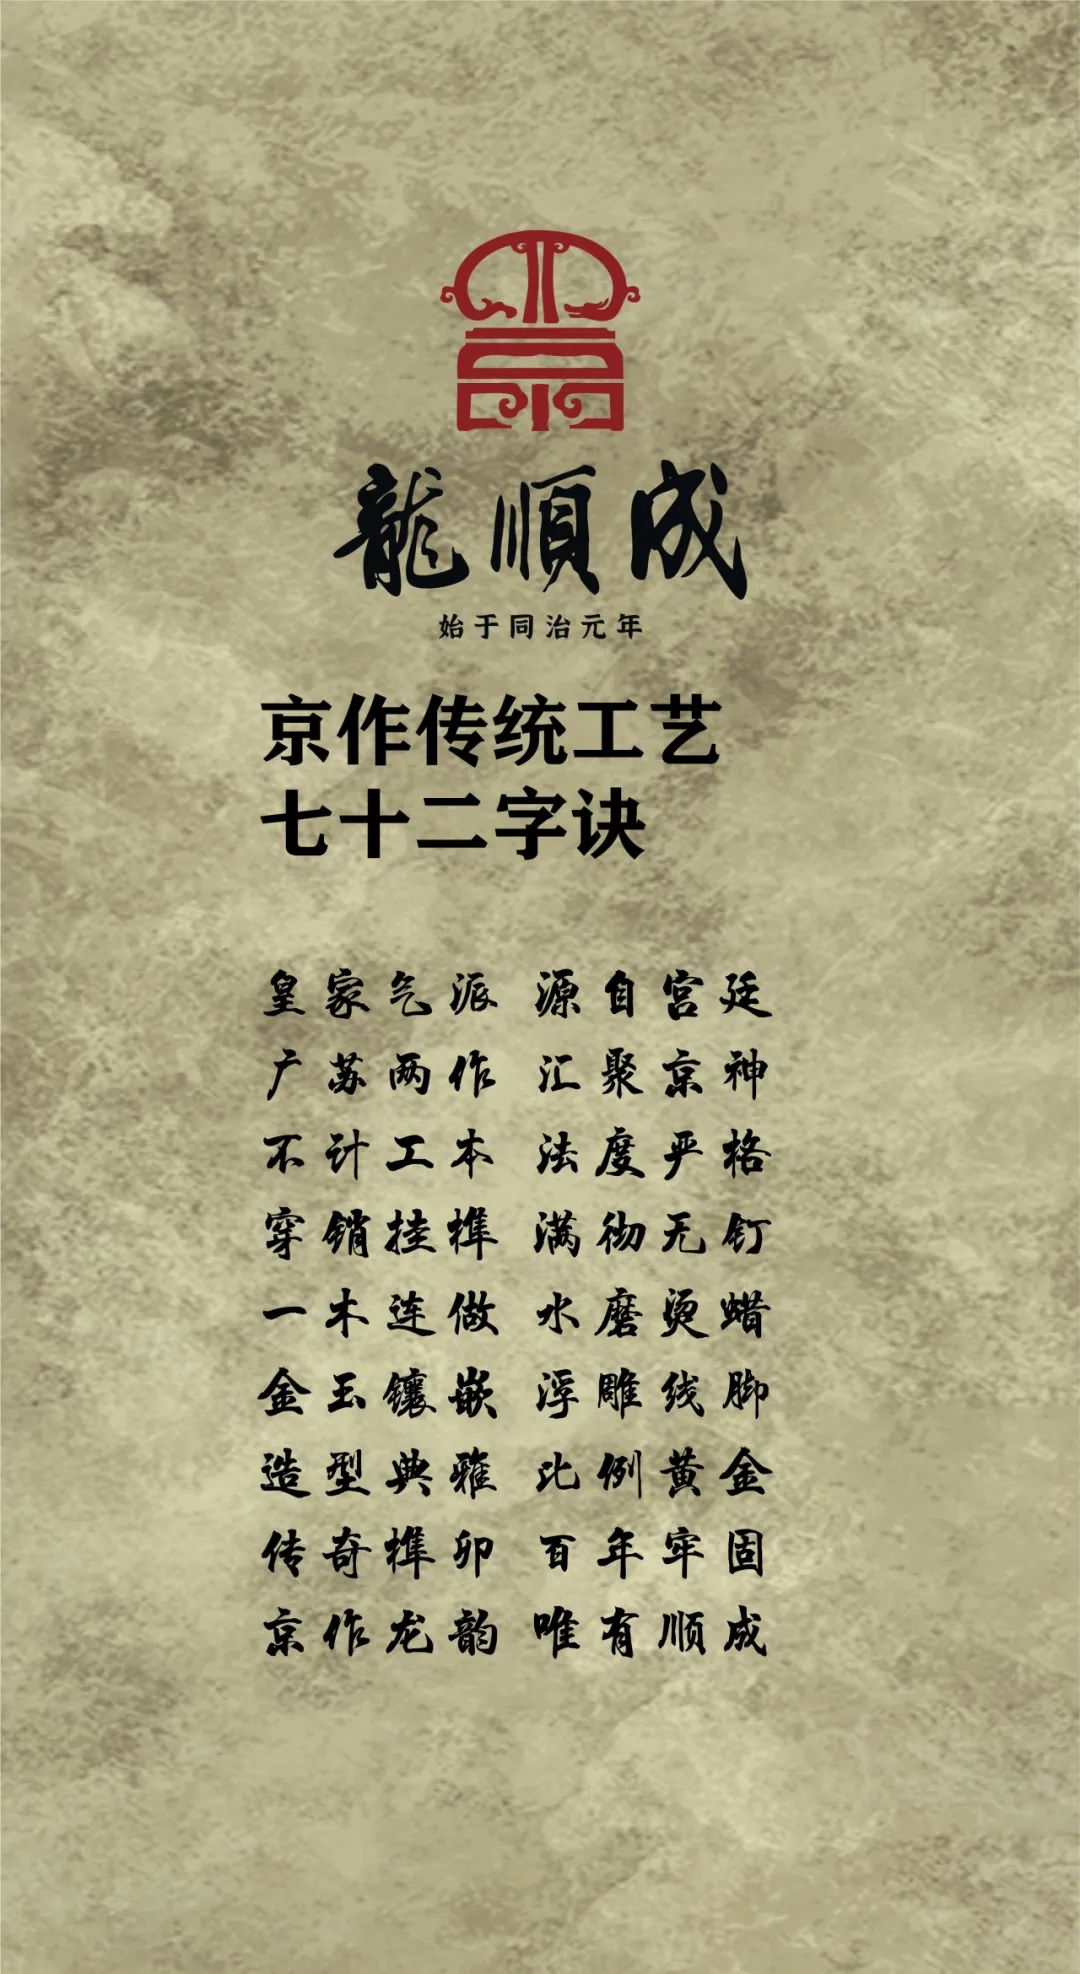 龍順成
始于同治元年
京作传统工艺
七十二字诀
皇家气派 源自宫廷
广苏两作 汇聚京神
不计工本 法度严格
穿销挂榫 满彻无钉
一木连做 水磨烫蜡
金玉镶嵌 浮雕线脚
造型典雅 比例黄金
传奇榫卯 百年牢固
京作龙韵 唯有顺成